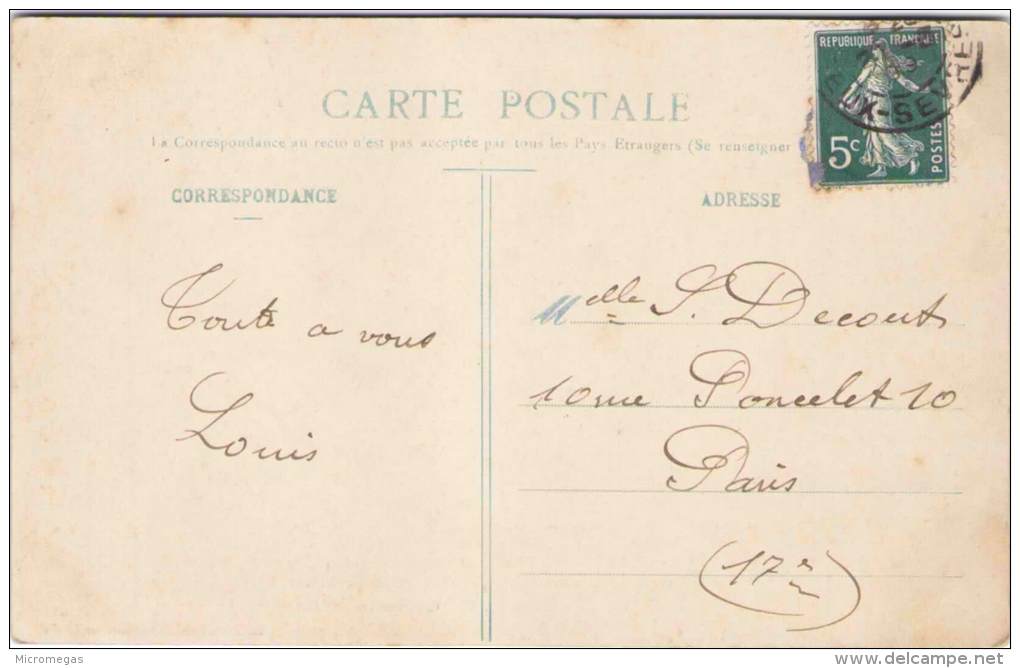 REPUBLIQUE FRANÇAISE
5c
POSTES
CARTE POSTALE
La Correspondance au recto n'est pas acceptée par tous les Pays Etrangers (Se renseigner
CORRESPONDANCE
ADRESSE
Toute a vous
Louis
Melle S. Decout
10 rue Poncelet 10
Paris
(17e)
Micromegas
delcampe.net